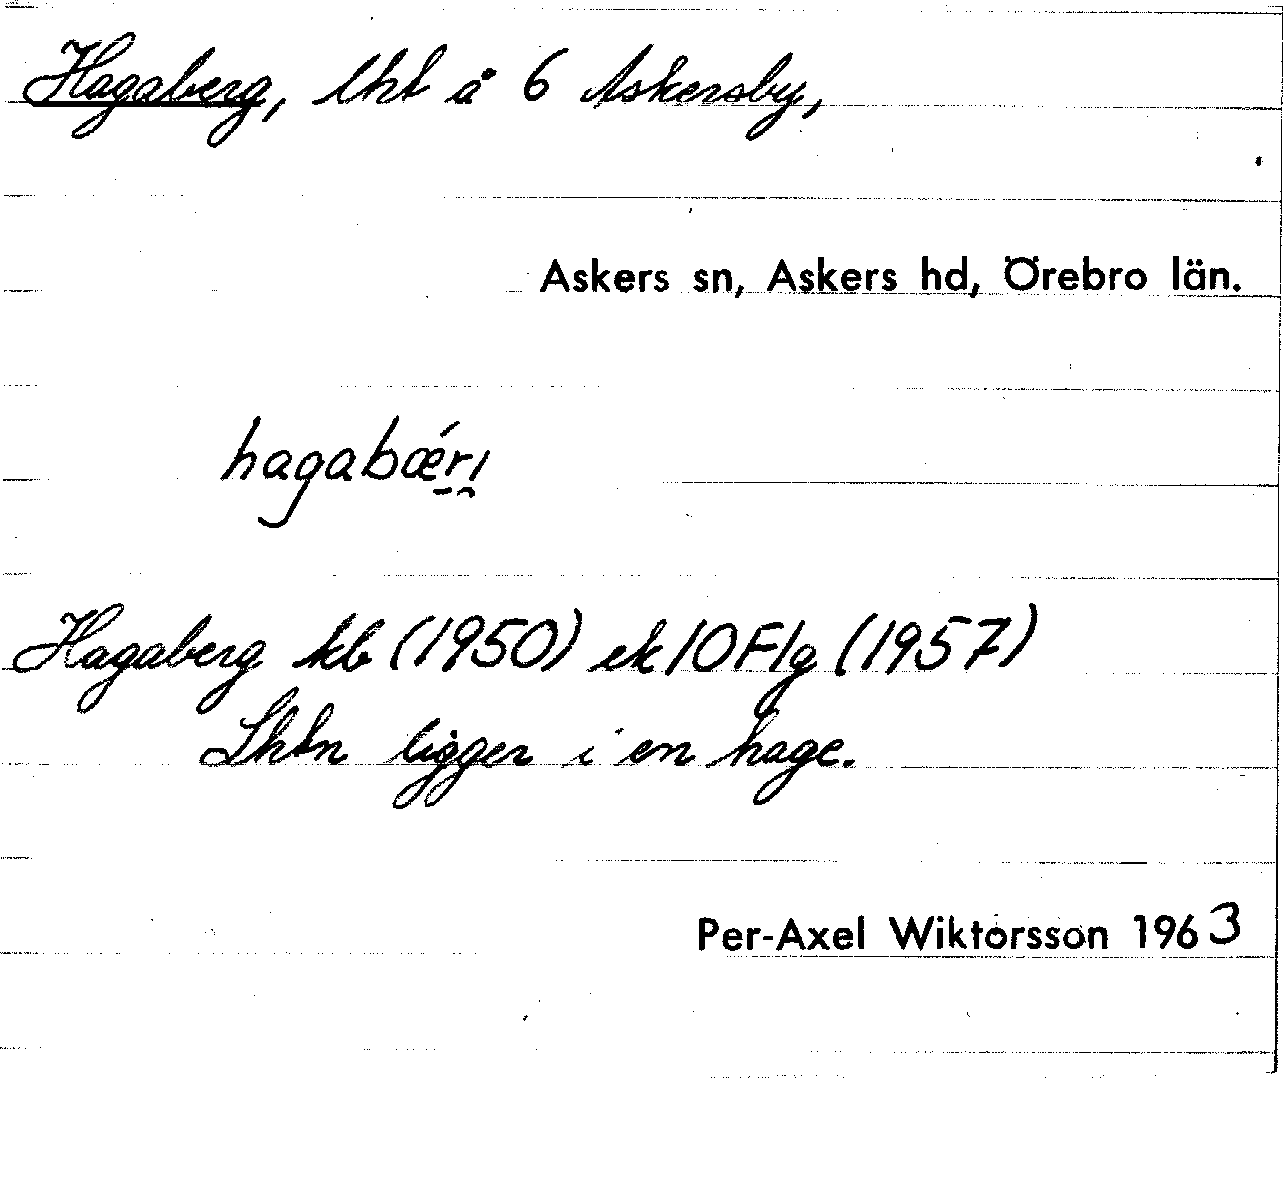 Hagaberg, lht å 6 Askersby,
Askers sn, Askers hd, Örebro län.
hagabǽrı
Hagaberg kb (1950) ek 10F1g (1957)
Lhtn ligger i en hage.
Per-Axel Wiktorsson 1963